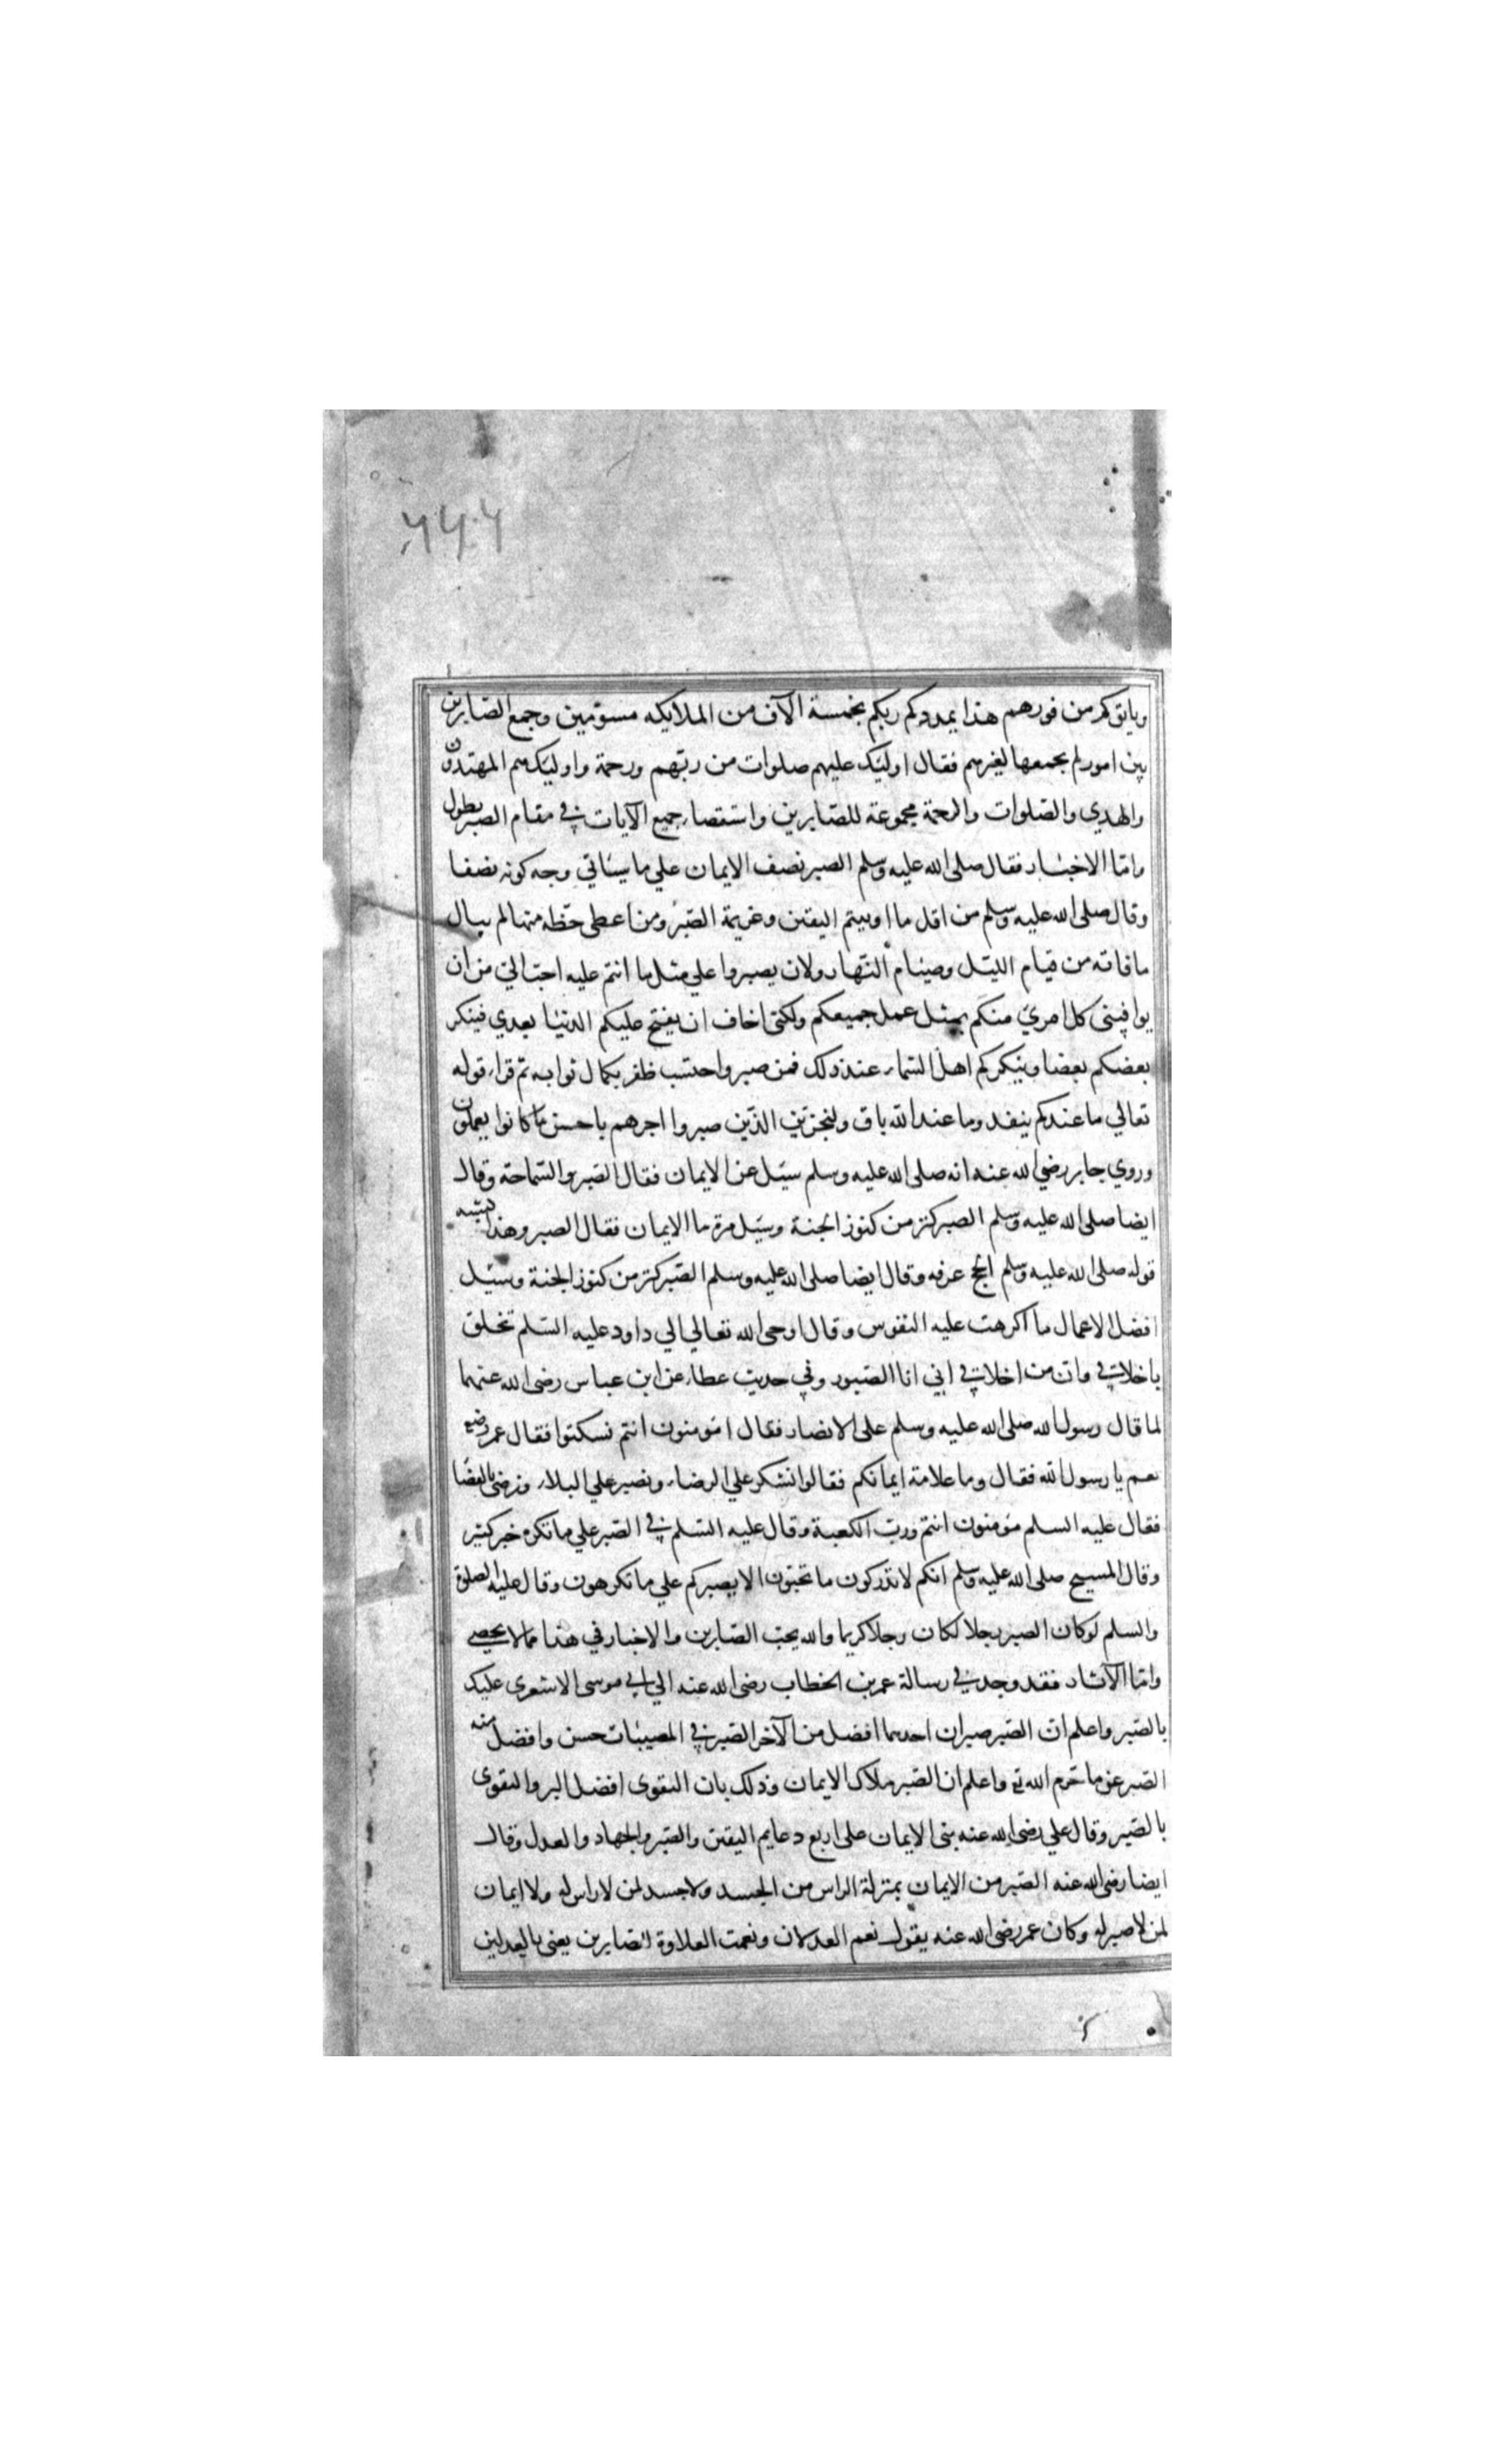 ٢٤٢
وياتوكم من فورهم هذا يمددكم ربكم بخمسة الآف من الملايكه مسوّمين وجمع الصّابرين
بين امور لم يجمعها لغيرهم فقال اوليَك عليهم صلوات من ربّهم ورحمة واوليَك هم المهتدون
والهدي والصّلوات والرحمة مجموعة للصّابرين واستقصاء جميع الآيات في مقام الصبر يطول
وامّا الاخبار فقال صلى الله عليه وسلم الصبر نصف الايمان علي ما سياتي وجه كونه نصفا
وقال صلى الله عليه وسلم من اقل ما اوتيتم اليقين وعزيمة الصّبر ومن اعطى حظّه منهما لم يبال
ما فاته من قيام الليّل وصيام النّهار ولان يصبروا علي مثل ما انتم عليه احبّ اليّ من ان
يوافيني كل امريَ منكم بمثل عمل جميعكم ولكنّى اخاف ان يفتح عليكم الدنيا بعدي فينكر
بعضكم بعضا وينكركم اهل السّماء عند ذلك فمن صبر واحتسب ظفر بكمال ثوابه ثم قراء قوله
تعالي ما عندكم ينفد وما عند الله باق ولنجزينّ الذّين صبروا اجرهم باحسن ما كانوا يعملون
وروي جابر رضي الله عنه انه صلى الله عليه وسلم سيَل عن الايمان فقال الصّبر والسّماحة وقال
ايضا صلى الله عليه وسلم الصبر كنز من كنوز الجنة وسيَل مرة ما الايمان فقال الصبر وهذا يشبه
قوله صلى الله عليه وسلم الحج عرفه وقال ايضا صلى الله عليه وسلم الصّبر كنز من كنوز الجنة وسيَل
افضل الاعمال ما اكرهت عليه النفوس وقال اوحى الله تعالي الي داود عليه السّلم تخلق
باخلاقي وانّ من اخلاقي اني انا الصّبور وفي حديث عطاء عن ابن عباس رضى الله عنهما
لما قال رسول الله صلى الله عليه وسلم على الانصار فقال امَومنون انتم فسكتوا فقال عمر رضع
نعم يا رسول الله فقال وما علامة ايمانكم فقالوا نشكر علي الرضاء ونصبر علي البلاء ونرضى بالقضا
فقال عليه السلم مَومنون انتم وربّ الكعبة وقال عليه السّلم في الصّبر علي ما تكره خير كثير
وقال المسيح صلى الله عليه وسلم انكم لا تدركون ما تحبّون الا بصبركم علي ما تكرهون وقال عليه الصلوة
والسلم لو كان الصبر رجلا لكان رجلا كريما والله يحبّ الصّابرين والاخبار في هذا مما لا يحصى
وامّا الآثار فقد وجد في رسالة عمر بن الخطاب رضى الله عنه الي ابي موسى الاشعرى عليك
بالصّبر واعلم انّ الصّبر صبران احدهما افضل من الآخر الصّبر في المصيبات حسن وافضل منه
الصّبر عن ما حّرم الله تع واعلم ان الصّبر ملاك الايمان وذلك بان التقوى افضل البر والتقوى
بالصّبر وقال علي رضى الله عنه بنى الايمان على اربع دعايم اليقين والصّبر والجهاد والعدل وقال
ايضا رضى الله عنه الصّبر من الايمان بمنزلة الراس من الجسد ولا جسد لمن لا راس له ولا ايمان
لمن لا صبر له وكان عمر رضى الله عنه يقول نعم العدلان ونعمت العلاوة للصّابرين يعنى بالعدلين